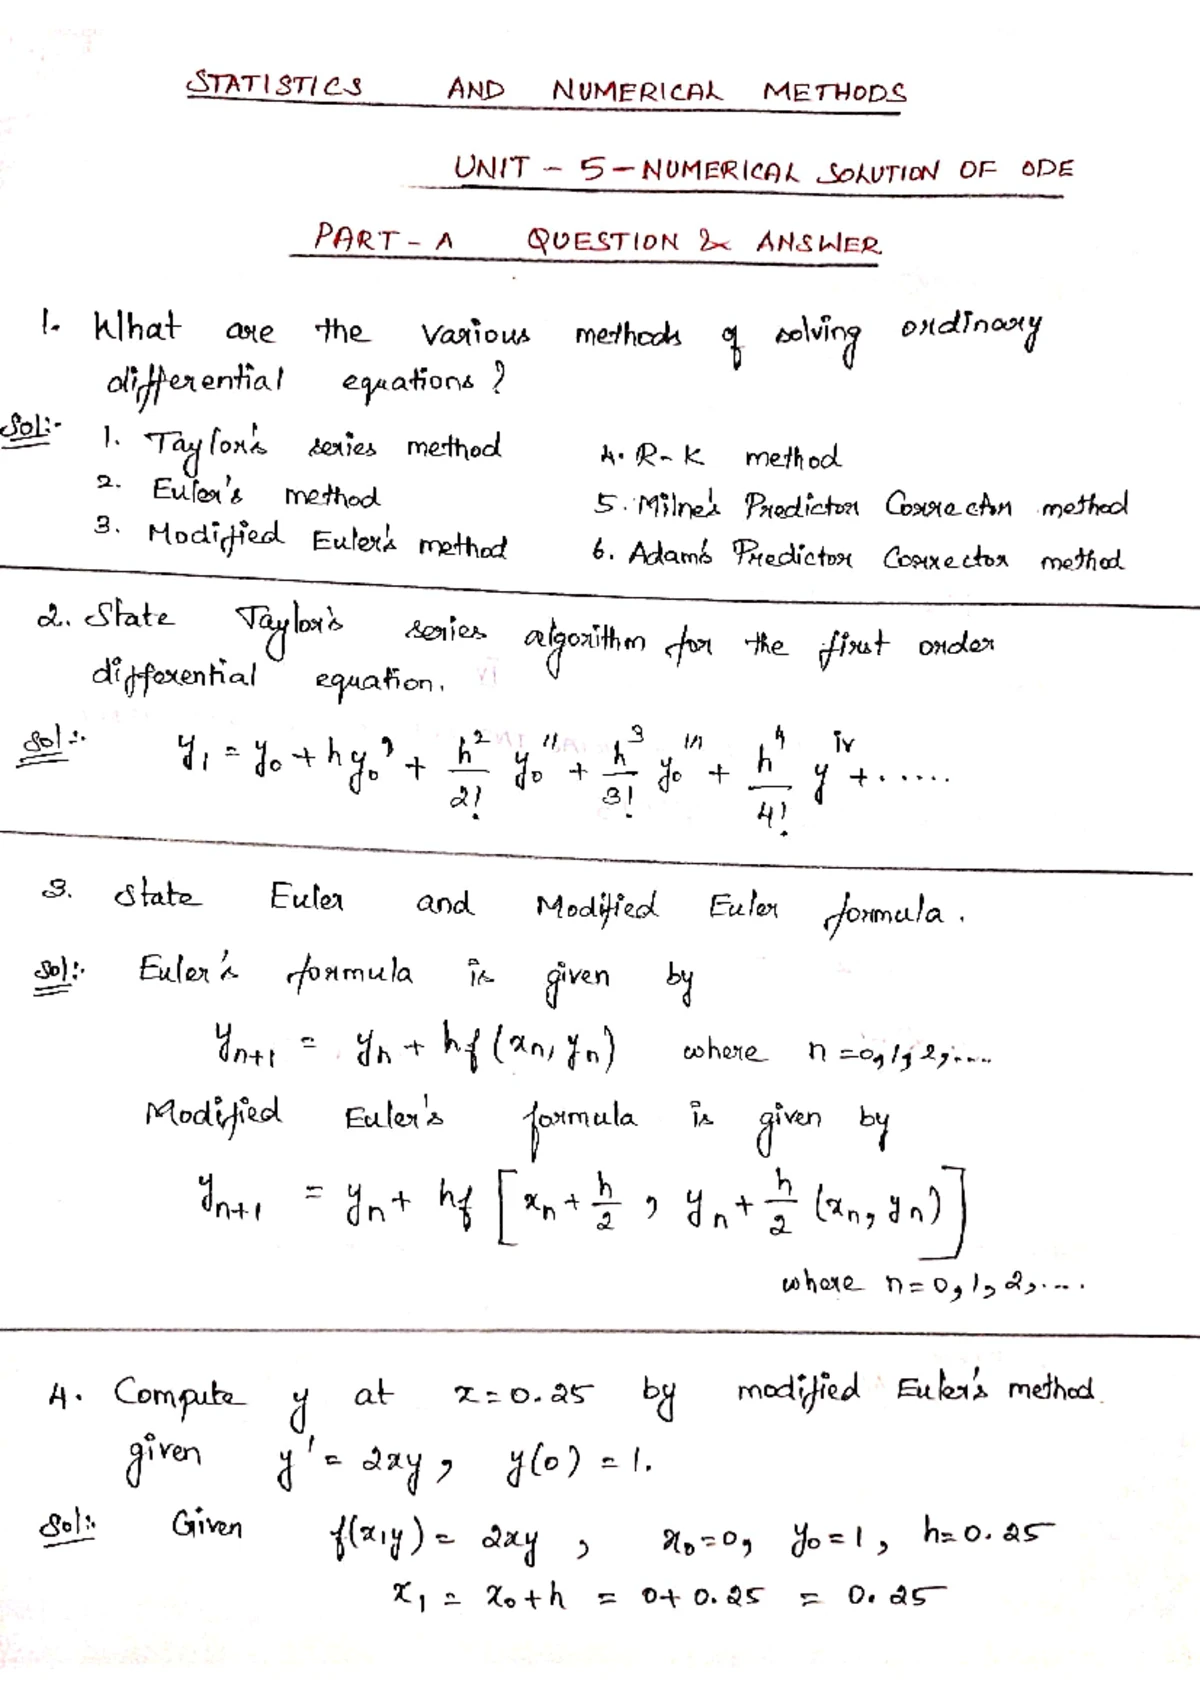 STATISTICS AND NUMERICAL METHODS
UNIT - 5 - NUMERICAL SOLUTION OF ODE
PART - A QUESTION & ANSWER
1. What are the various methods of solving ordinary
differential equations?
Sol:- 1. Taylor's series method 4. R-K method
2. Euler's method 5. Milne's Predictor Corrector method
3. Modified Euler's method 6. Adam's Predictor Corrector method
2. State Taylor's series algorithm for the first order
differential equation.
Sol:- y₁ = y₀ + hy₀' + h²/2! y₀'' + h³/3! y₀''' + h⁴/4! y^iv + ......
3. State Euler and Modified Euler formula.
Sol:- Euler's formula is given by
yₙ₊₁ = yₙ + hf(xₙ, yₙ) where n = 0, 1, 2, ....
Modified Euler's formula is given by
yₙ₊₁ = yₙ + hf [xₙ + h/2, yₙ + h/2 (xₙ, yₙ)]
where n = 0, 1, 2, ....
4. Compute y at x = 0.25 by modified Euler's method
given y' = 2xy, y(0) = 1.
Sol:- Given f(x,y) = 2xy, x₀ = 0, y₀ = 1, h = 0.25
x₁ = x₀ + h = 0 + 0.25 = 0.25